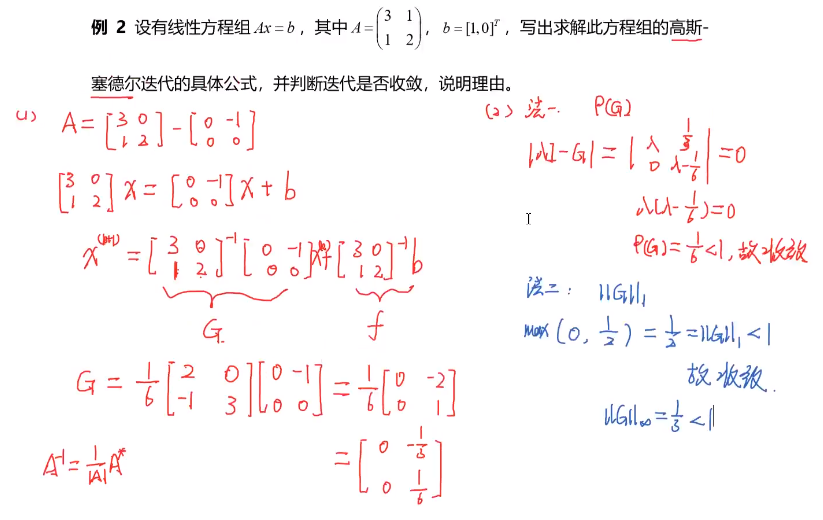 例 2 设有线性方程组 Ax = b，其中 A = (3 1; 1 2)，b = [1,0]^T，写出求解此方程组的高斯-
塞德尔迭代的具体公式，并判断迭代是否收敛，说明理由。
(1) A = [3 0; 1 2] - [0 -1; 0 0]
[3 0; 1 2] x = [0 -1; 0 0] x + b
x^(k+1) = [3 0; 1 2]^-1 [0 -1; 0 0] x^(k) + [3 0; 1 2]^-1 b
G. f
G = 1/6 [2 0; -1 3] [0 -1; 0 0] = 1/6 [0 -2; 0 1]
A^-1 = 1/|A| A*
= [0 -1/3; 0 1/6]
(2) 法一. ρ(G)
|λI-G| = |λ 1/3; 0 λ-1/6| = 0
λ(λ-1/6)=0
ρ(G) = 1/6 < 1, 故收敛
法二： ||G||₁
max(0, 1/2) = 1/2 = ||G||₁ < 1
故收敛.
||G||∞ = 1/3 < 1